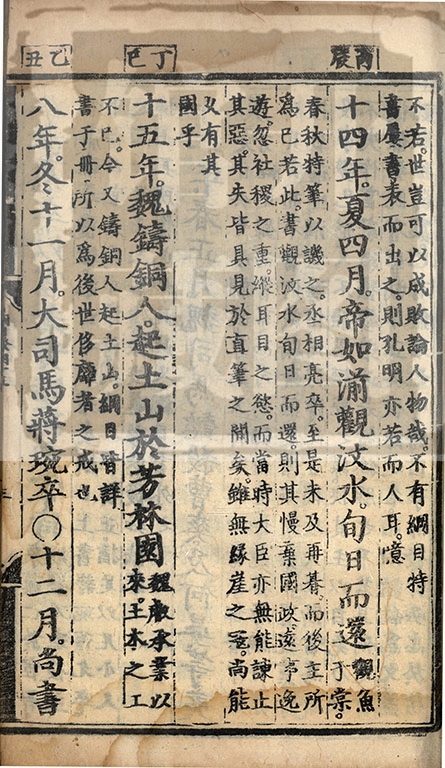 丙辰
不若。世豈可以成敗論人物哉。不有綱目特
書屢書表而出之。則孔明亦若而人耳。噫
十四年。夏四月。帝如湔觀汶水。旬日而還觀魚
于棠。
春秋特筆以譏之。丞相亮卒。至是未及再朞。而後主所
爲已若此。書觀汶水旬日而還。則其慢棄國政遠事逸
遊。忽社稷之重。縱耳目之慾。而當時大臣亦無能諫止
其惡。其失皆具見於直筆之間矣。雖無緣崖之㓂。尚能
乂有其
國乎
丁巳
十五年。魏鑄銅人。起土山於芳林園魏叡承業以
來。王木之工
不已。今又鑄銅人起土山。綱目皆詳
書于冊。所以爲後世侈靡者之戒也
乙丑
八年。冬十一月。大司馬蔣琬卒○十二月。尚書